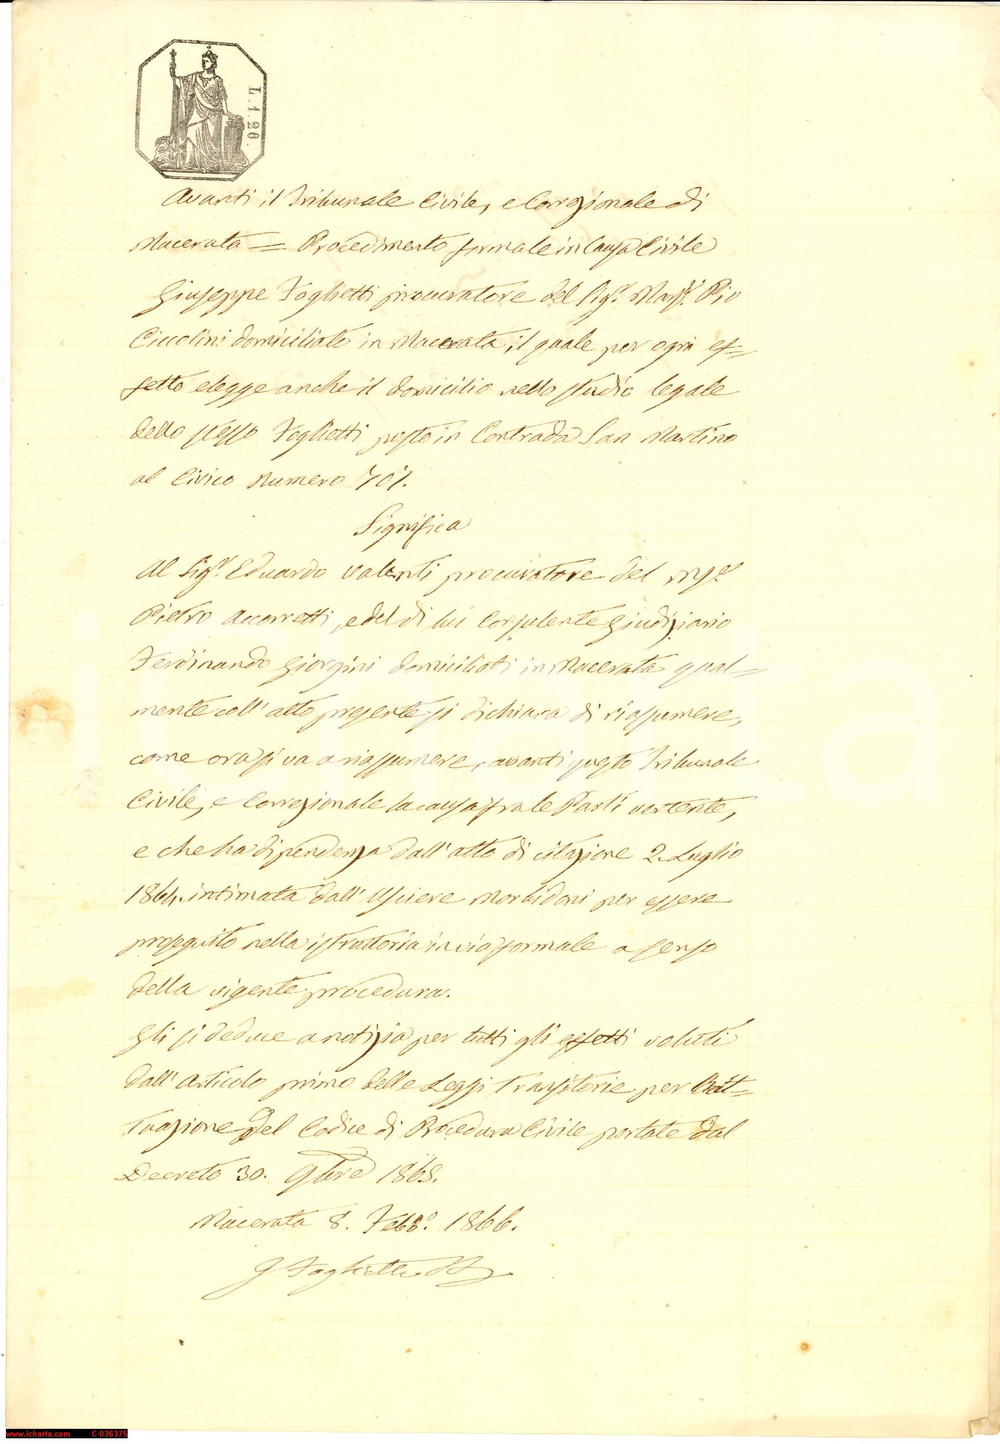 L. 1. 20.
Avanti il Tribunale Civile, e Corezionale di
Macerata = Procedimento formale in Causa Civile
Giuseppe Foglietti procuratore del Sig.r March.e Pio
Ciccolini domiciliato in Macerata, il quale per ogni ef=
fetto elegge anche il domicilio nello studio legale
dello stesso Foglietti posto in Contrada San Martino
al Civico Numero 701.
Significa
Al Sig.r Eduardo Valenti procuratore del
Pietro Accorretti, e del di lui Consulente Giudiziario
Ferdinando Giorgini domiciliati in Macerata qual=
mente coll' atto presente si dichiara di riassumere,
come ora si va a riassumere, avanti questo Tribunale
Civile, e Corezionale la causa fra le Parti vertente,
e che ha dipendenza dall' atto di citazione 2. Luglio
1864. intimata dall' Usciere Morbidoni per essere
proseguito nella istruttoria in via formale a senso
della vigente procedura.
Gli si deduce a notizia per tutti gli effetti voluti
dall' Articolo primo delle Leggi Transitorie per l'Atti=
tuazione del Codice di Procedura Civile portate dal
Decreto 30. 9bre 1865.
Macerata 8. Febb.o 1866.
G Foglietti
www.icharta.com C-036375